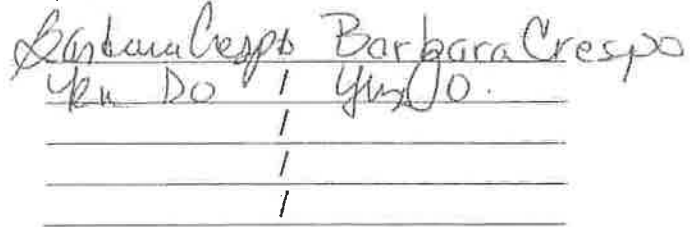 Barbara Crespo Barbara Crespo
Yen Do / Yen Do.
/
/
/